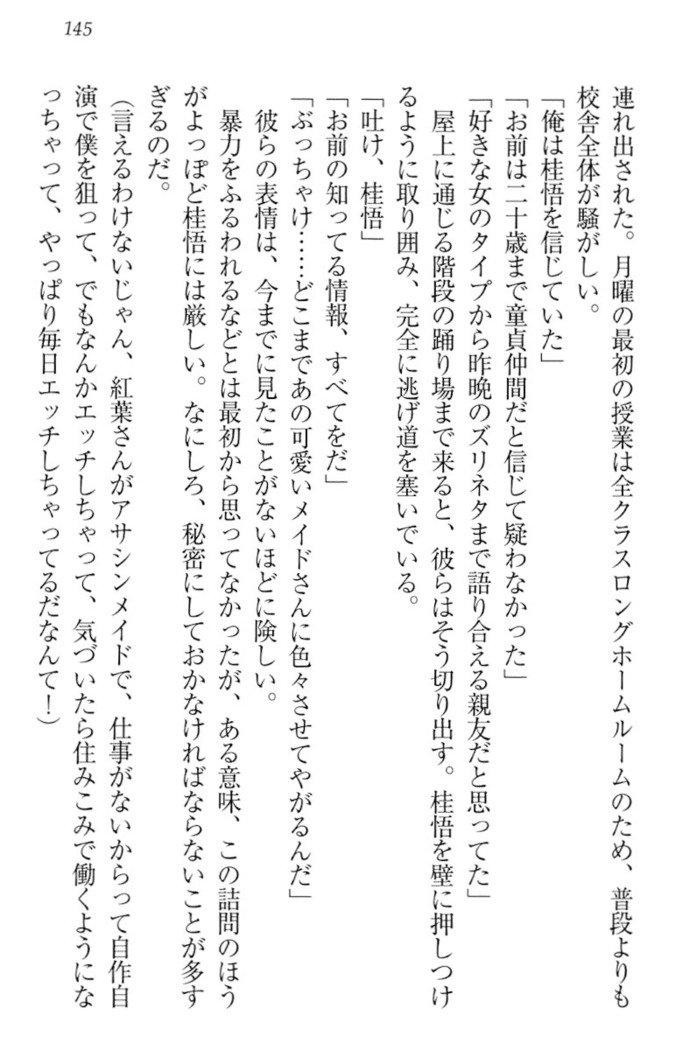 145
連れ出された。月曜の最初の授業は全クラスロングホームルームのため、普段よりも
校舎全体が騒がしい。
「俺は桂悟を信じていた」
「お前は二十歳まで童貞仲間だと信じて疑わなかった」
「好きな女のタイプから昨晩のズリネタまで語り合える親友だと思ってた」
　屋上に通じる階段の踊り場まで来ると、彼らはそう切り出す。桂悟を壁に押しつけ
るように取り囲み、完全に逃げ道を塞いでいる。
「吐け、桂悟」
「お前の知ってる情報、すべてをだ」
「ぶっちゃけ……どこまであの可愛いメイドさんに色々させてやがるんだ」
　彼らの表情は、今までに見たことがないほどに険しい。
　暴力をふるわれるなどとは最初から思ってなかったが、ある意味、この詰問のほう
がよっぽど桂悟には厳しい。なにしろ、秘密にしておかなければならないことが多す
ぎるのだ。
（言えるわけないじゃん、紅葉さんがアサシンメイドで、仕事がないからって自作自
演で僕を狙って、でもなんかエッチしちゃって、気づいたら住みこみで働くようにな
っちゃって、やっぱり毎日エッチしちゃってるだなんて！）